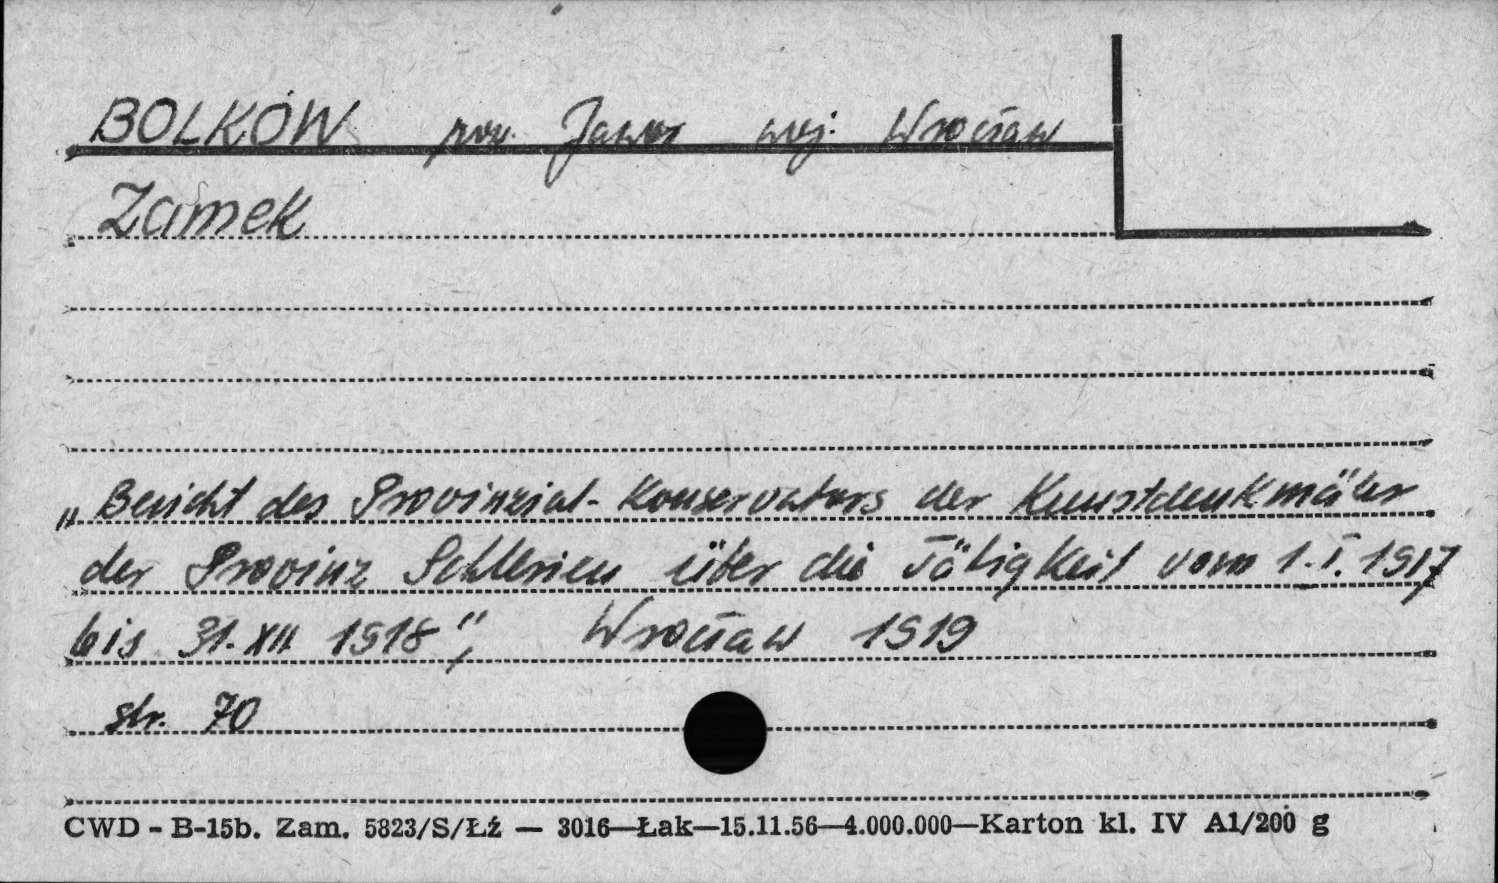 BOLKÓW pow. Jawor woj. Wrocław
Zamek
„Bericht des Provinzial-Konservators der Kunstdenkmäler
der Provinz Schlesien über die Tätigkeit vom 1.I.1917
bis 31.XII 1918", Wrocław 1919
str. 70
CWD - B-15b. Zam. 5823/S/Łź — 3016—Łak—15.11.56—4.000.000—Karton kl. IV A1/200 g